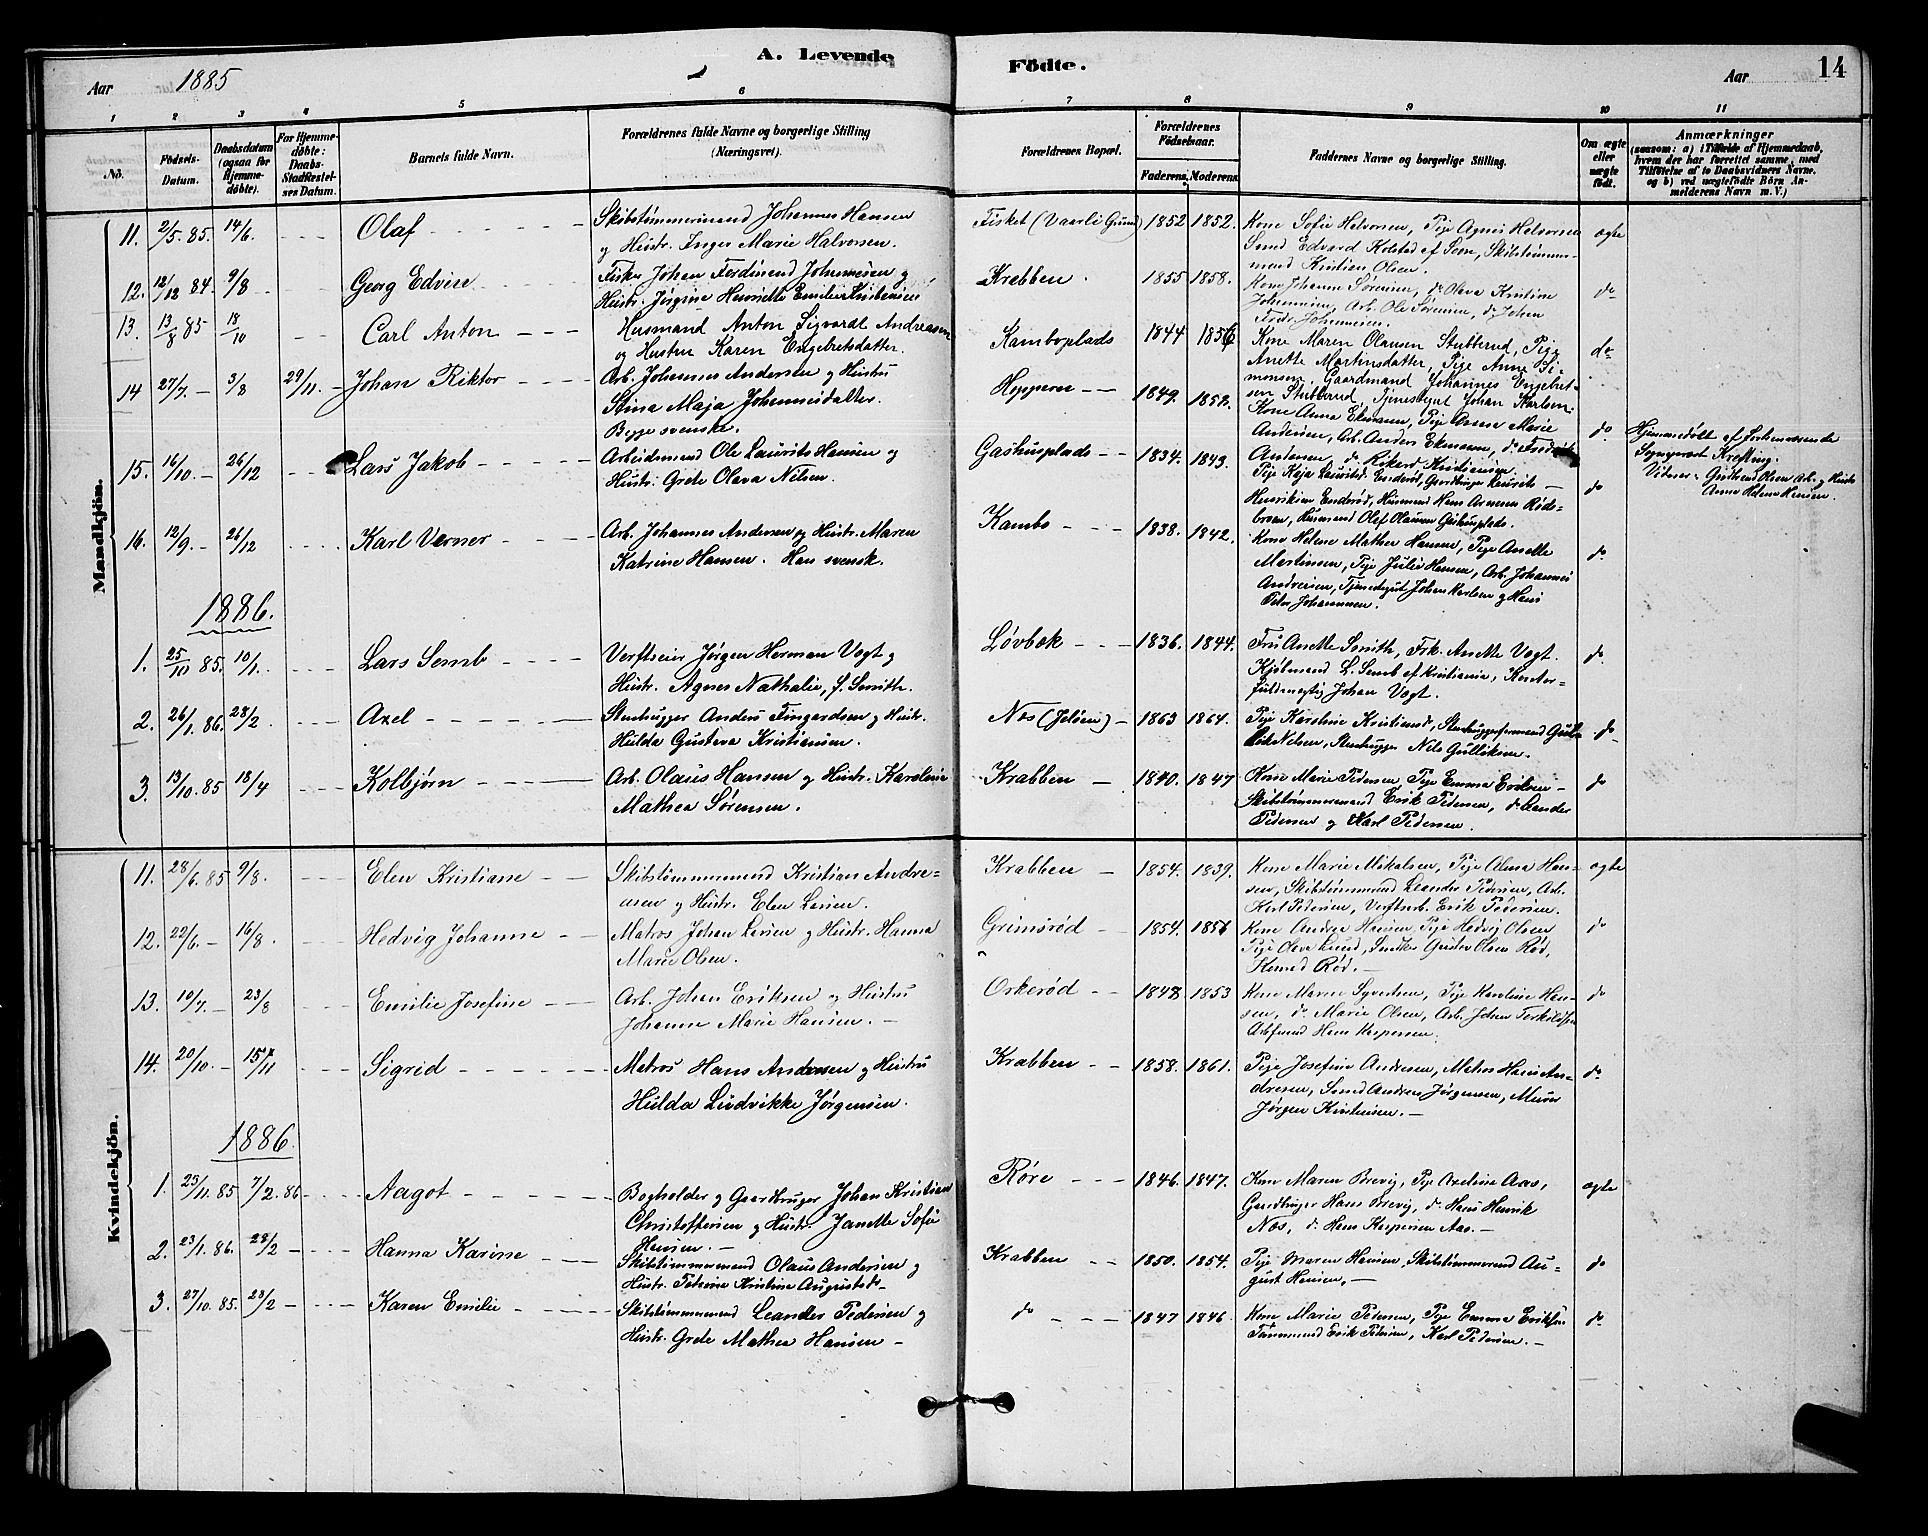 Aar 1885
A. Levende
Födte.
Aar
14
1 2 3 4 5 6 7 8 9 10 11
No.
Födsels-Datum.
Daabsdatum (ogsaa for Hjemme-döbte).
For Hjemme-döbte: Daabs-Stadfæstel-ses Datum.
Barnets fulde Navn.
Forældrenes fulde Navne og borgerlige Stilling
(Næringsvei).
Forældrenes Bopæl.
Forældrenes Födselsaar.
Faderens. Moderens.
Faddernes Navne og borgerlige Stilling.
Om ægte eller uægte födt.
Anmærkninger
(saasom: a) i Tilfælde af Hjemmedaab,
hvem der har forrettet samme, med
Tilföielse af to Daabsvidners Navne,
og b) ved uægtefödte Börn An-
melderens Navn m. V.)
Mandkjön.
11. 2/5. 85. 14/6. Olaf
Skibstømmermand Johannes Hansen
og Hustr. Inger Marie Halvorsen.
Fisket (Vaarli Grund) 1852 1852.
Kone Sofie Halvorsen, Pige Agnes Halvorsen
Smed Edvard Kolstad af Soon, Skibstømmer-
mand Kristian Olsen.
ægte
12. 12/12 84. 9/8 Georg Edvin
Fisker Johan Ferdinand Johannesen og
Hustr. Jørgine Henriette Emilie Kristensen
Krabben. 1855 1858.
Kone Johanne Sørensen, do Olava Kristine
Johannesen, Arb. Ole Sørensen, do Johan
Fredr. Johannesen.
do
13. 13/8 85 18/10 Carl Anton
Husmand Anton Sigvardt Andreasen
og Hustru Karen Engebretsdatter.
Kamboplads 1844 1856
Kone Maren Olausen Stubberud, Pige
Anette Martinsdatter, Pige Anne Si-
monsen, Gaardmand Johannes Engebret-
sen Stubberud, Tjenestgut Johan Karlsen.
do
14 27/7. 3/8 29/11. Johan Riktor
Arb. Johannes Andersen og Hustru
Stina Maja Johannesdatter.
Begge svenske.
Hoppern 1849. 1858.
Kone Anna Ekmann, Pige Anna Marie
Andersen, Arb. Anders Ekmann, do Fredrik
Andersen, do Rikard Kristiansen.
do
Hjemmedøbt af
Sogneprest Krefting.
Anna Helene Hansen.
15. 16/10. 26/12 Lars Jakob
Arbeidsmand Ole Laurits Hansen og
Hustr. Grete Olava Nilsen.
Gashusplads 1834. 1843.
Pige Kaja Lauritsd. Enderød, Gaardbruger Laurits
Henriksen Enderød, Husmand Hans Arnesen Røds-
broen, Husmand Olaf Olausen Gashusplads.
do
16. 12/9. 26/12 Karl Verner
Arb. Johannes Andersen og Hustr. Maren
Katrine Hansen. Han svensk.
Kambo 1838. 1842.
Kone Helene Mathea Hansen, Pige Anette
Martinsen, Pige Julie Hansen, Arb. Johannes
Andresen, Tjenestegut Johan Karlsen og Hans
Peter Johannesen.
do
1886.
1. 25/10 85. 10/1. Lars Semb
Verftseier Jørgen Herman Vogt og
Hustr. Agnes Nathalie, f. Smith.
Løvbok 1836. 1844.
Fru Anette Smith, Frk. Anette Vogt.
Kjøbmand L. Semb af Kristiania, Kontor-
fuldmægtig Johan Vogt.
do.
2. 26/1. 86. 28/2. Axel
Stenhugger Anders Fingardsen og Hustr.
Hulda Gustava Kristiansen.
Nes (Jeløen) 1863 1864.
Pige Karoline Kristiansd., Stenhuggerformand Gul-
Nilsen, Stenhugger Nils Gulliksen.
do
3. 13/10. 85 18/4 Kolbjørn
Arb. Olaus Hansen og Hustr. Karoline
Mathea Sørensen.
Krabben 1840. 1847
Kone Marie Pedersen, Pige Emma Eriksen
Skibstømmermand Erik Pedersen, do Leander
Pedersen og Karl Pedersen.
do
Kvindekjön.
11. 28/6. 85 9/8. Elen Kristiane
Skibstømmermand Kristian Andre-
asen og Hustr. Elen Larsen.
Krabben 1854. 1839.
Kone Marie Mikalsen, Pige Alma Han-
sen, Skibstømmermd Leander Pedersen, Arb.
Karl Pedersen, Verftsarb. Erik Pedersen.
ægte
12. 22/6. 16/8. Hedvig Johanne
Matros Johan Larsen og Hustr. Hanna
Marie Olsen.
Grimsrød 1854. 1856
Kone Andrea Hansen, Pige Hedvig Olsen
Pige Olava Lund, Snedker Gustav Olsen Rød,
Rød.
do
13. 10/7. 23/8 Emilie Josefine
Arb. Johan Eriksen og Hustru
Johanne Marie Hansen.
Orkerød 1848 1853
Kone Maren Syvertsen, Pige Karoline Han-
sen, do Marie Olsen, Arb. Johan Terkelsen
Arbmand Hans Kaspersen.
do
14. 20/10. 15/11 Sigrid
Matros Hans Andersen og Hustru
Hulda Ludvikke Jørgensen.
Krabben 1858. 1861.
Pige Josefine Andersen, Matros Hans An-
dresen, Smed Andreas Jørgensen, Murer
Jørgen Kristensen.
do
1886.
1. 23/11. 85 7/2. 86 Aagot
Bogholder og Gaardbruger Johan Kristian
Christoffersen og Hustr. Janette Sofie
Hansen.
Røre 1846. 1847.
Kone Maren Brevig, Pige Axeline Aas,
Gaardbruger Hans Brevig, do Hans Henrik
Nos, do Hans Kaspersen Aas.
ægte
2. 23/1. 86. 28/2 Hanna Karine
Skibstømmermand Olaus Andersen og
Hustr. Petrine Kristine Augustsdr.
Krabben 1850. 1854.
Pige Maren Hansen, Skibstømmermand Au-
gust Hansen,
do
3. 27/10. 85. 28/2 Karen Emilie
Skibstømmermand Leander Pedersen og
Hustr. Grete Mathea Hansen
do 1847 1846.
Kone Marie Pedersen, Pige Emma Eriksen
Tømmermand Erik Pedersen, Karl Pedersen.
do